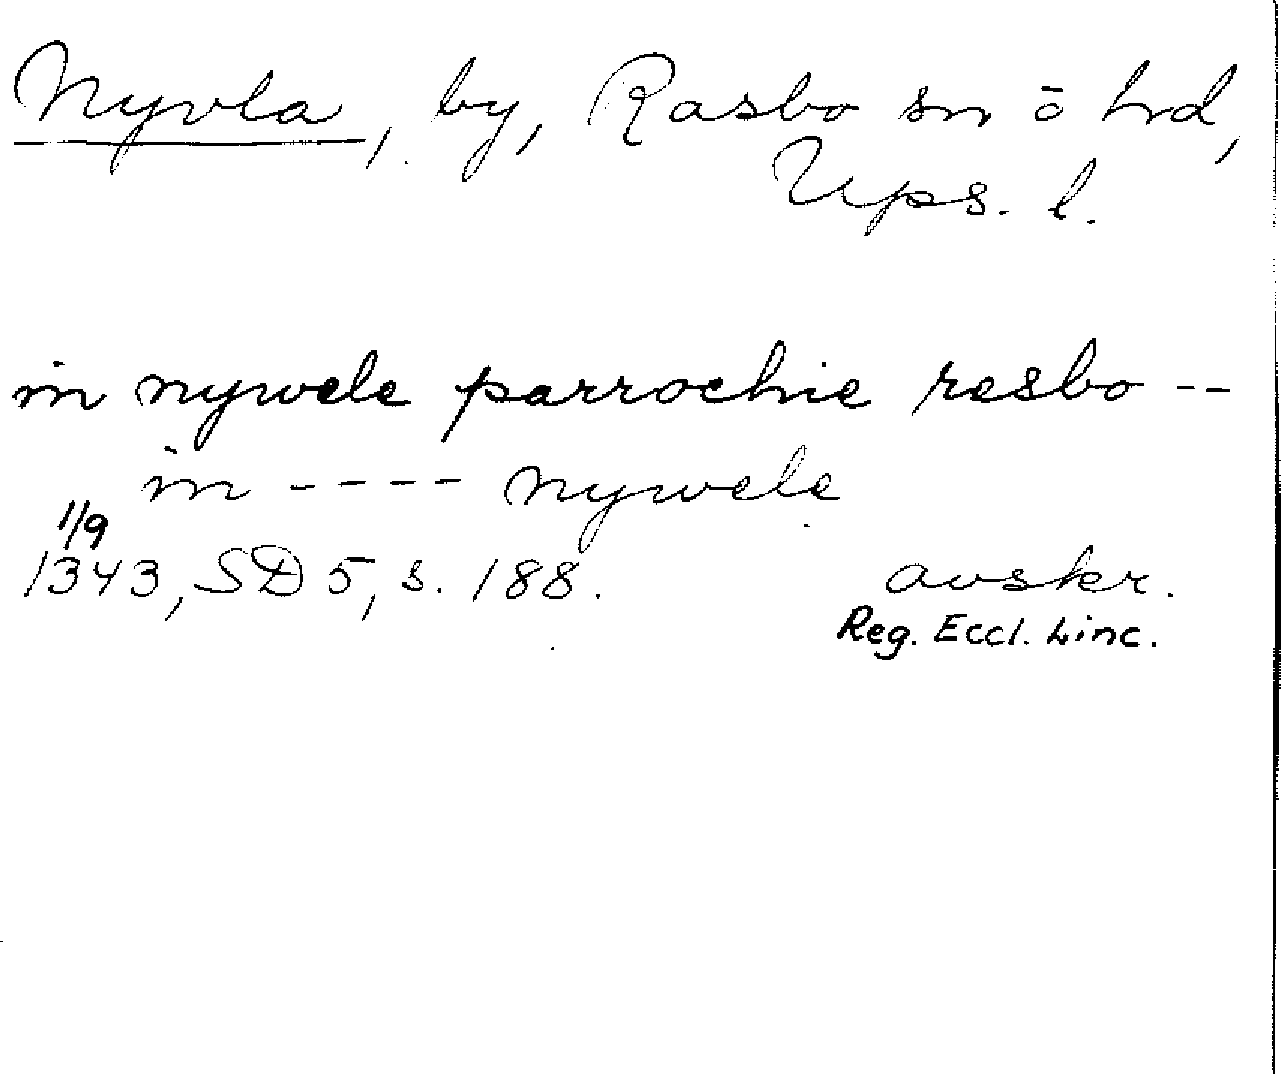 Nyvla, by, Rasbo sn ō hd,
Ups. l.
in nywele parrochie rasbo --
in ---- nywele
1/9
1343, SD 5, s. 188. avskr.
Reg. Eccl. Linc.